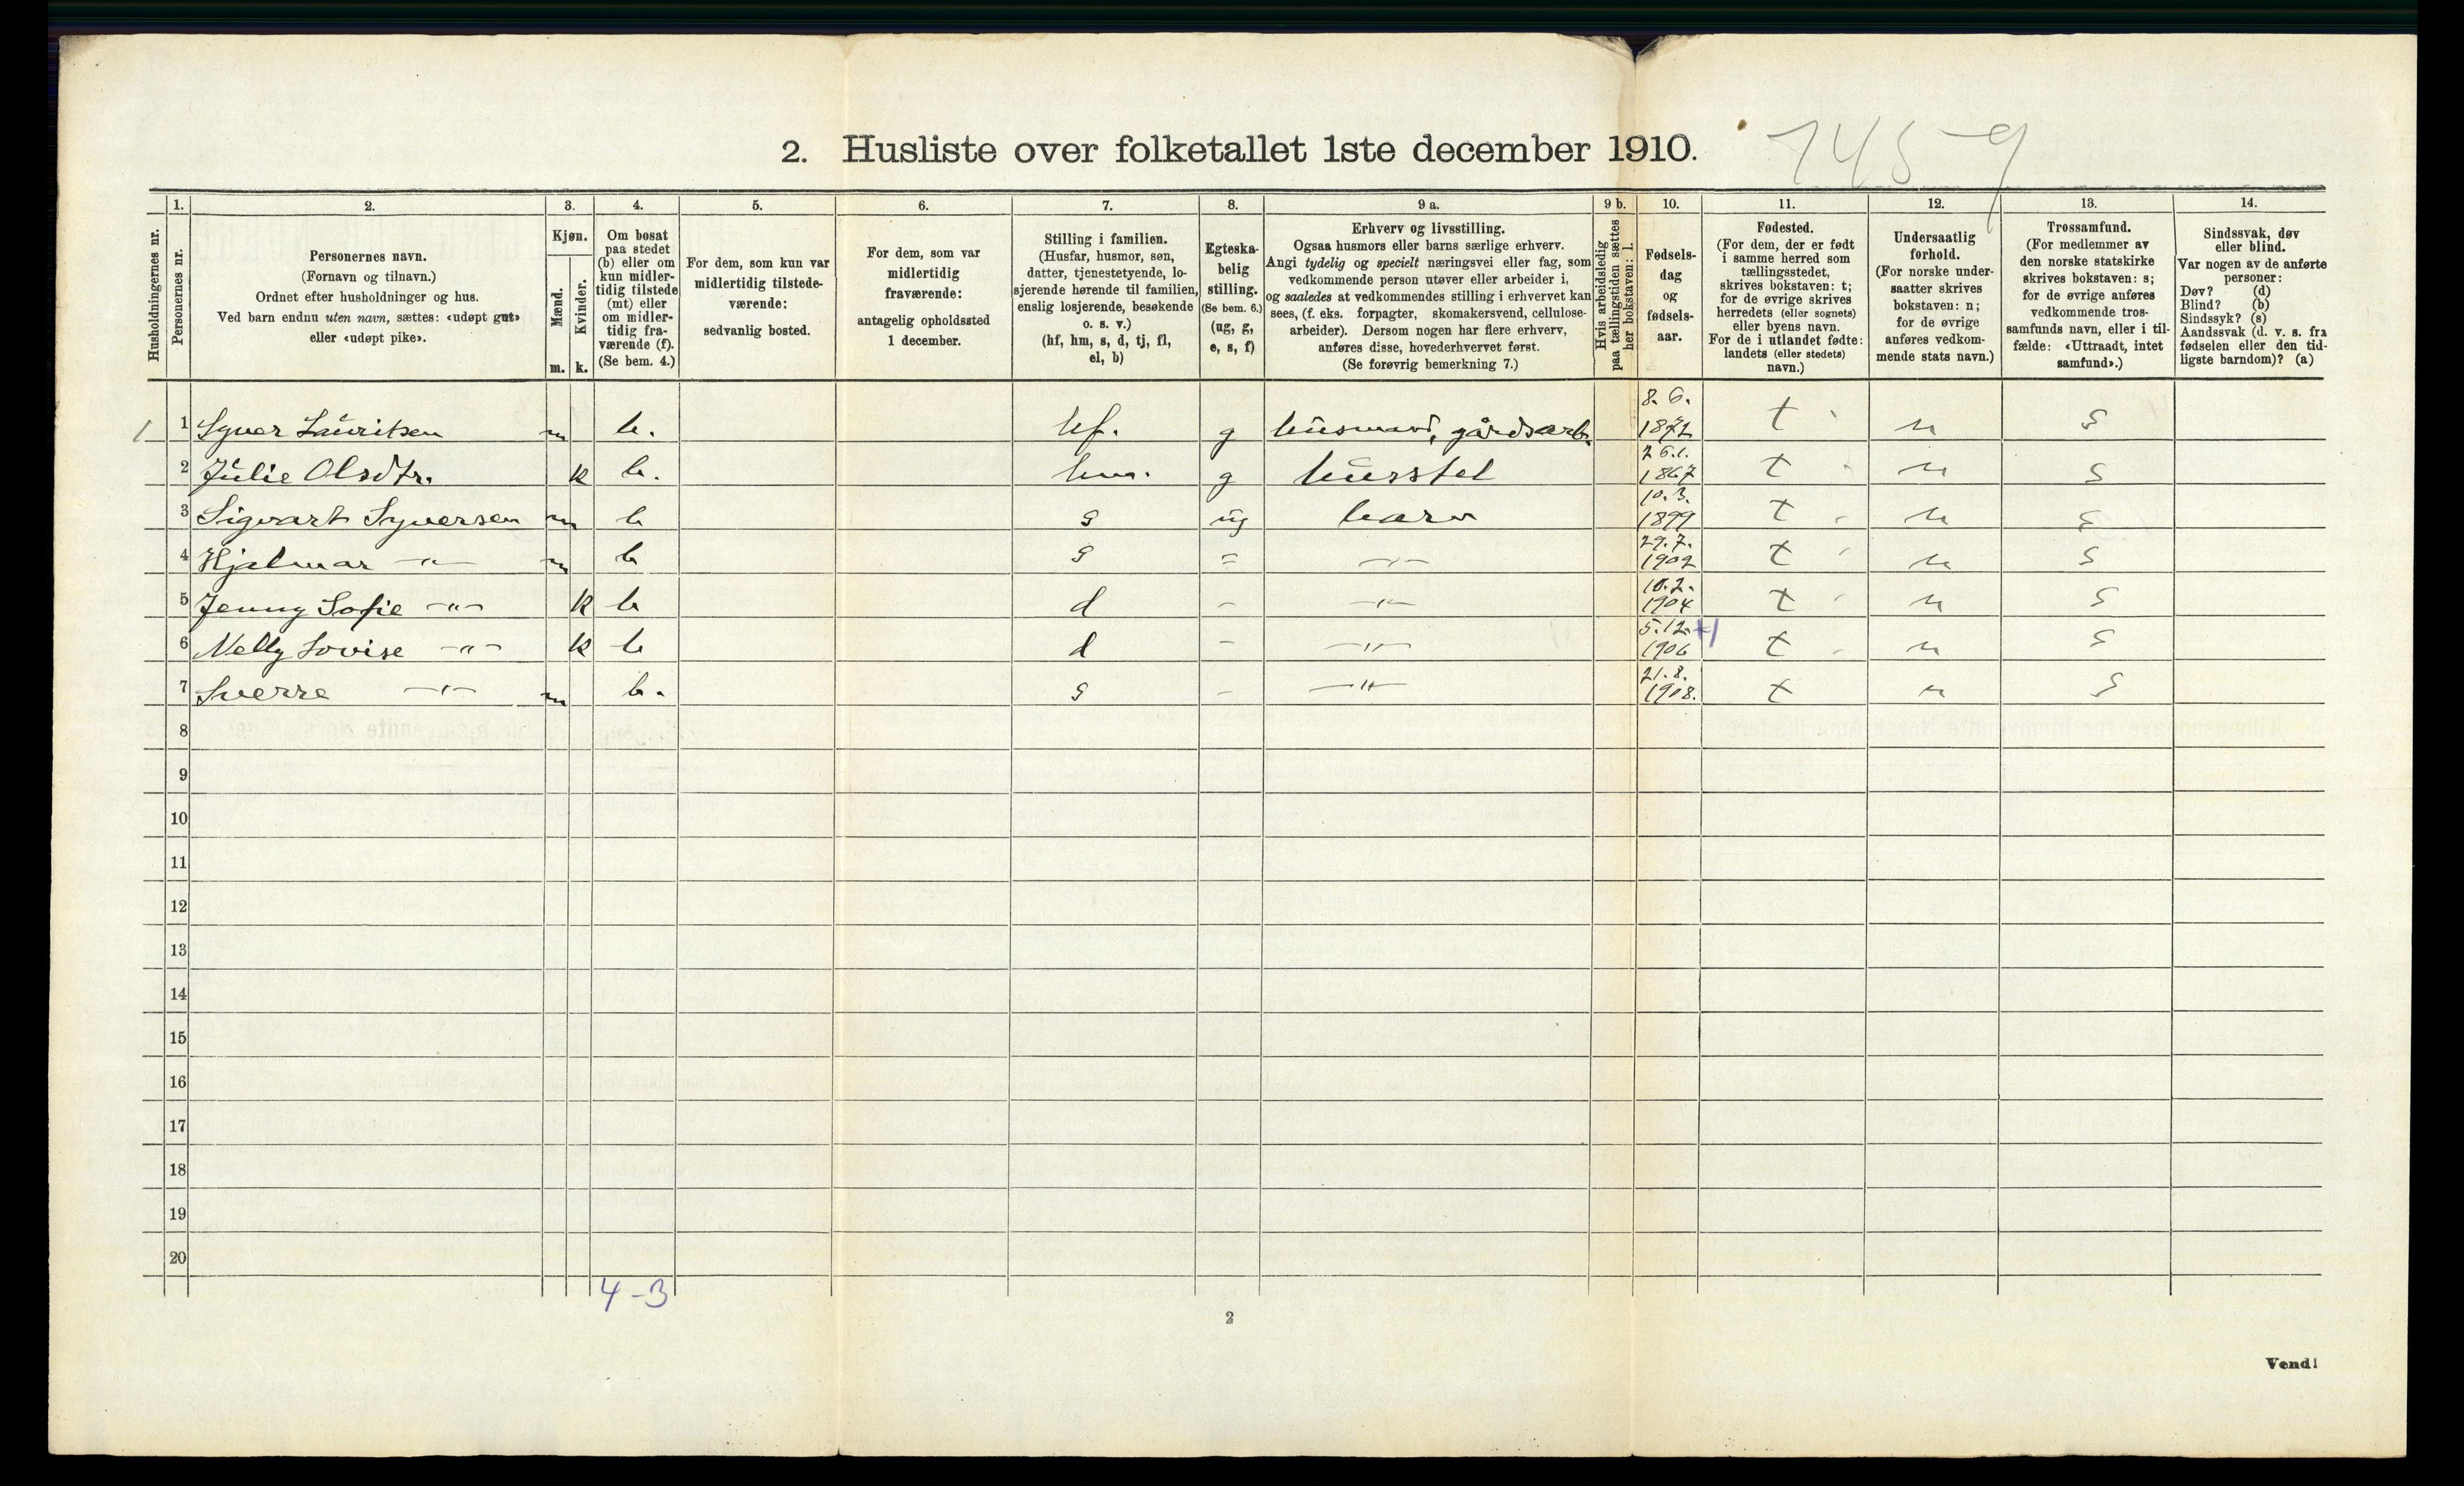 2. Husliste over folketallet 1ste december 1910.
145-9
Husholdningernes nr.
1.
Personernes nr.
2.
Personernes navn.
(Fornavn og tilnavn.)
Ordnet efter husholdninger og hus.
Ved barn endnu uten navn, sættes: «udøpt gut»
eller «udøpt pike».
3.
Kjøn.
Mænd.
Kvinder.
m. k.
4.
Om bosat
paa stedet
(b) eller om
kun midler-
tidig tilstede
(mt) eller
om midler-
tidig fra-
værende (f).
(Se bem. 4.)
5.
For dem, som kun var
midlertidig tilstede-
værende:
sedvanlig bosted.
6.
For dem, som var
midlertidig
fraværende:
antagelig opholdssted
1 december.
7.
Stilling i familien.
(Husfar, husmor, søn,
datter, tjenestetyende, lo-
sjerende hørende til familien,
enslig losjerende, besøkende
o. s. v.)
(hf, hm, s, d, tj, fl,
el, b)
8.
Egteska-
belig
stilling.
(Se bem. 6.)
(ug, g,
e, s, f)
9 a.
Erhverv og livsstilling.
Ogsaa husmors eller barns særlige erhverv.
Angi tydelig og specielt næringsvei eller fag, som
vedkommende person utøver eller arbeider i,
og saaledes at vedkommendes stilling i erhvervet kan
sees, (f. eks. forpagter, skomakersvend, cellulose-
arbeider). Dersom nogen har flere erhverv,
anføres disse, hovederhvervet først.
(Se forøvrig bemerkning 7.)
9 b.
Hvis arbeidsledig
paa tællingstiden sættes
her bokstaven: l.
10.
Fødsels-
dag
og
fødsels-
aar.
11.
Fødested.
(For dem, der er født
i samme herred som
tællingsstedet,
skrives bokstaven: t;
for de øvrige skrives
herredets (eller sognets)
eller byens navn.
For de i utlandet fødte:
landets (eller stedets)
navn.)
12.
Undersaatlig
forhold.
(For norske under-
saatter skrives
bokstaven: n;
for de øvrige
anføres vedkom-
mende stats navn.)
13.
Trossamfund.
(For medlemmer av
den norske statskirke
skrives bokstaven: s;
for de øvrige anføres
vedkommende tros-
samfunds navn, eller i til-
fælde: «Uttraadt, intet
samfund».)
14.
Sindssvak, døv
eller blind.
Var nogen av de anførte
personer:
Døv? (d)
Blind? (b)
Sindssyk? (s)
Aandssvak (d. v. s. fra
fødselen eller den tid-
ligste barndom)? (a)
1 1 Syver Lauritsen m b. hf. g husmand, gårdsarb. 8.6. 1872 t n s
2 Julie Olsdtr. k b. hm. g husstel 26.1. 1867 t n s
3 Sigvart Syversen m b s ug barn 10.3. 1899 t n s
4 Hjalmar -"- m b s = -"- 29.7. 1902 t n s
5 Jenny Sofie -"- k b d - -"- 10.2. 1904 t n s
6 Nelly Lovise -"- k b d - -"- 5.12. 1906 t n s
7 Sverre -"- m b. s - -"- 21.8. 1908. t n s
8
9
10
11
12
13
14
15
16
17
18
19
20
4-3
2
Vend!